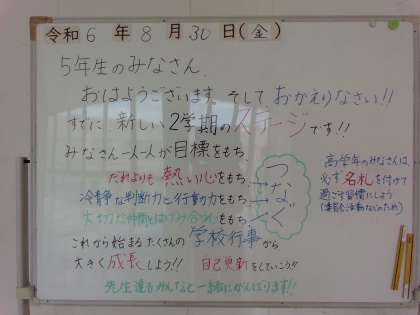 令和6年8月30日(金)
5年生のみなさん、
おはようございます。そして、おかえりなさい!!
すでに新しい2学期のステージです!!
みなさん一人一人が目標をもち、
だれよりも熱い心をもち、
冷静な判断力と行動力をもち、
大切な仲間と
をもち、
つなぐ
これから始まるたくさんの学校行事から
大きく成長しよう!! 自己更新をしていこう!!
先生達もみんなと一緒にがんばります!!
高学年のみなさんは、
必ず名札を付けて
過ごす習慣にしよう
(委員会活動などのため)